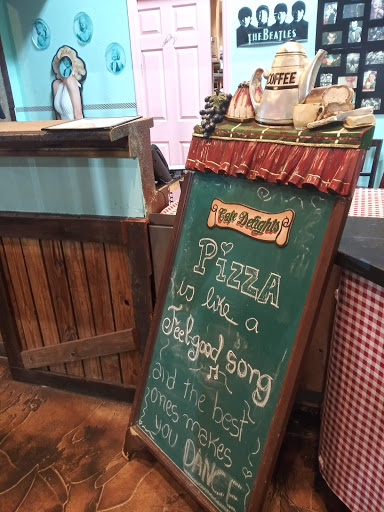 THE BEATLES
COFFEE
Cafe Delights
PIZZA
is like a
Feelgood song
and the best
ones makes
you DANCE